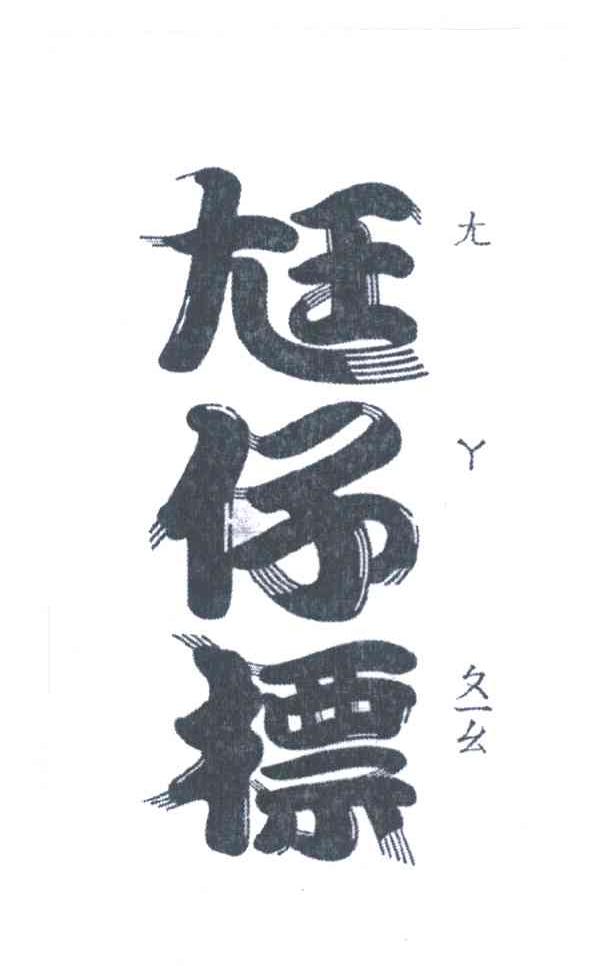 尪仔標
ㄤ ㄚ ㄆㄧㄠ